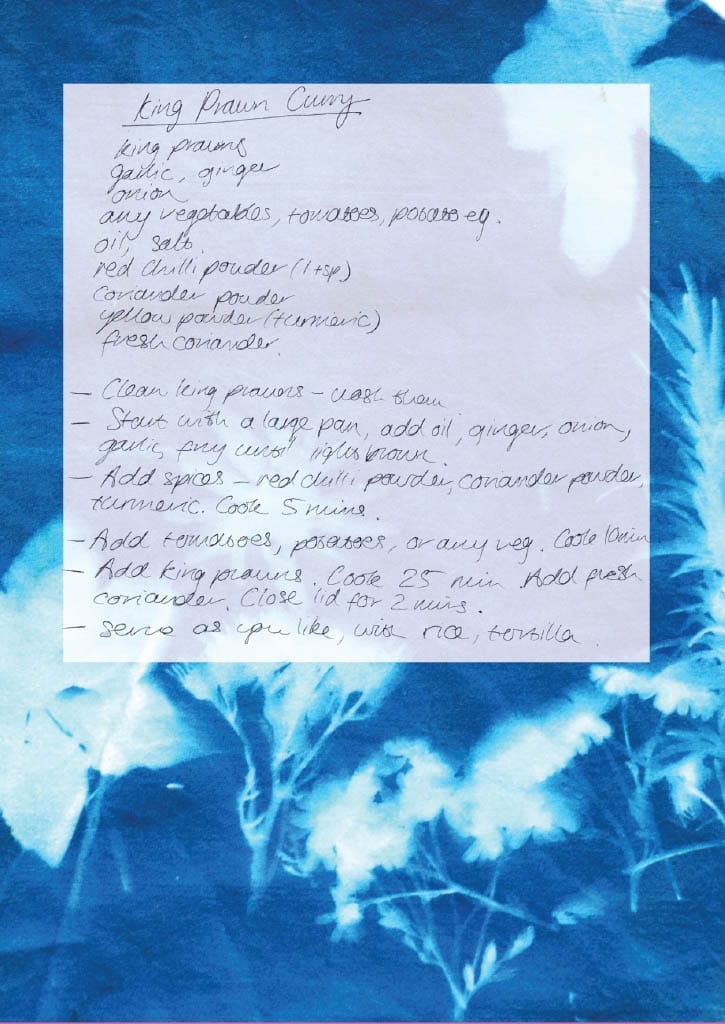 King Prawn Curry
king prawns
garlic, ginger
onion
any vegetables, tomatoes, potato eg.
oil, salt.
red chilli powder (1 tsp)
coriander powder
yellow powder (turmeric)
fresh coriander.
- Clean king prawns - wash them
- Start with a large pan, add oil, ginger, onion,
garlic, fry until light brown.
- Add spices - red chilli powder, coriander powder,
turmeric. Cook 5 mins.
- Add tomatoes, potatoes, or any veg. Cook 10 min
- Add king prawns. Cook 25 min. Add fresh
coriander. Close lid for 2 mins.
- serve as you like, with rice, tortilla.